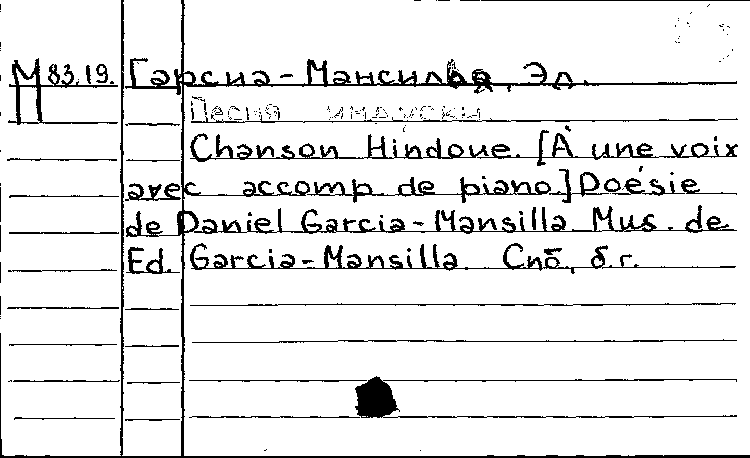 М 83.19. Гарсиа-Мансилья, Эл.
Песня индуски.
Chanson Hindoue. [À une voix
avec accomp. de piano.] Poésie
de Daniel Garcia-Mansilla. Mus. de
Ed. Garcia-Mansilla. Спб., б.г.